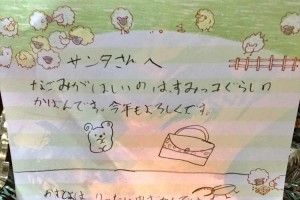 サンタさんへ
なごみがほしいのは、すみっコぐらしの
かばんです。今年もよろしくです。